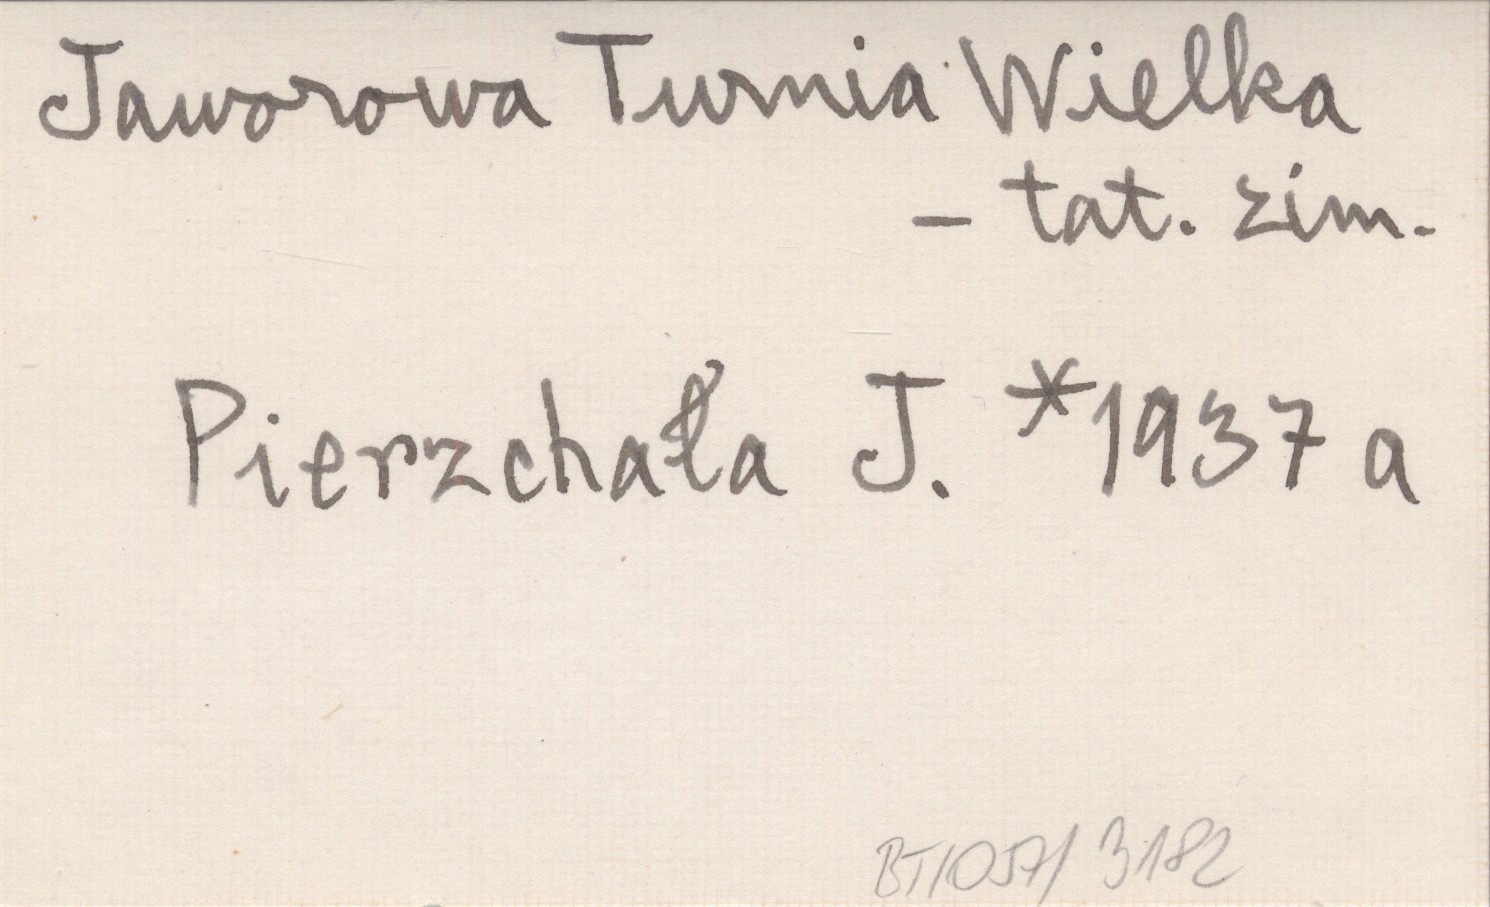 Jaworowa Turnia Wielka
- tat. zim.
Pierzchała J. *1937 a
BT/057/ 3182